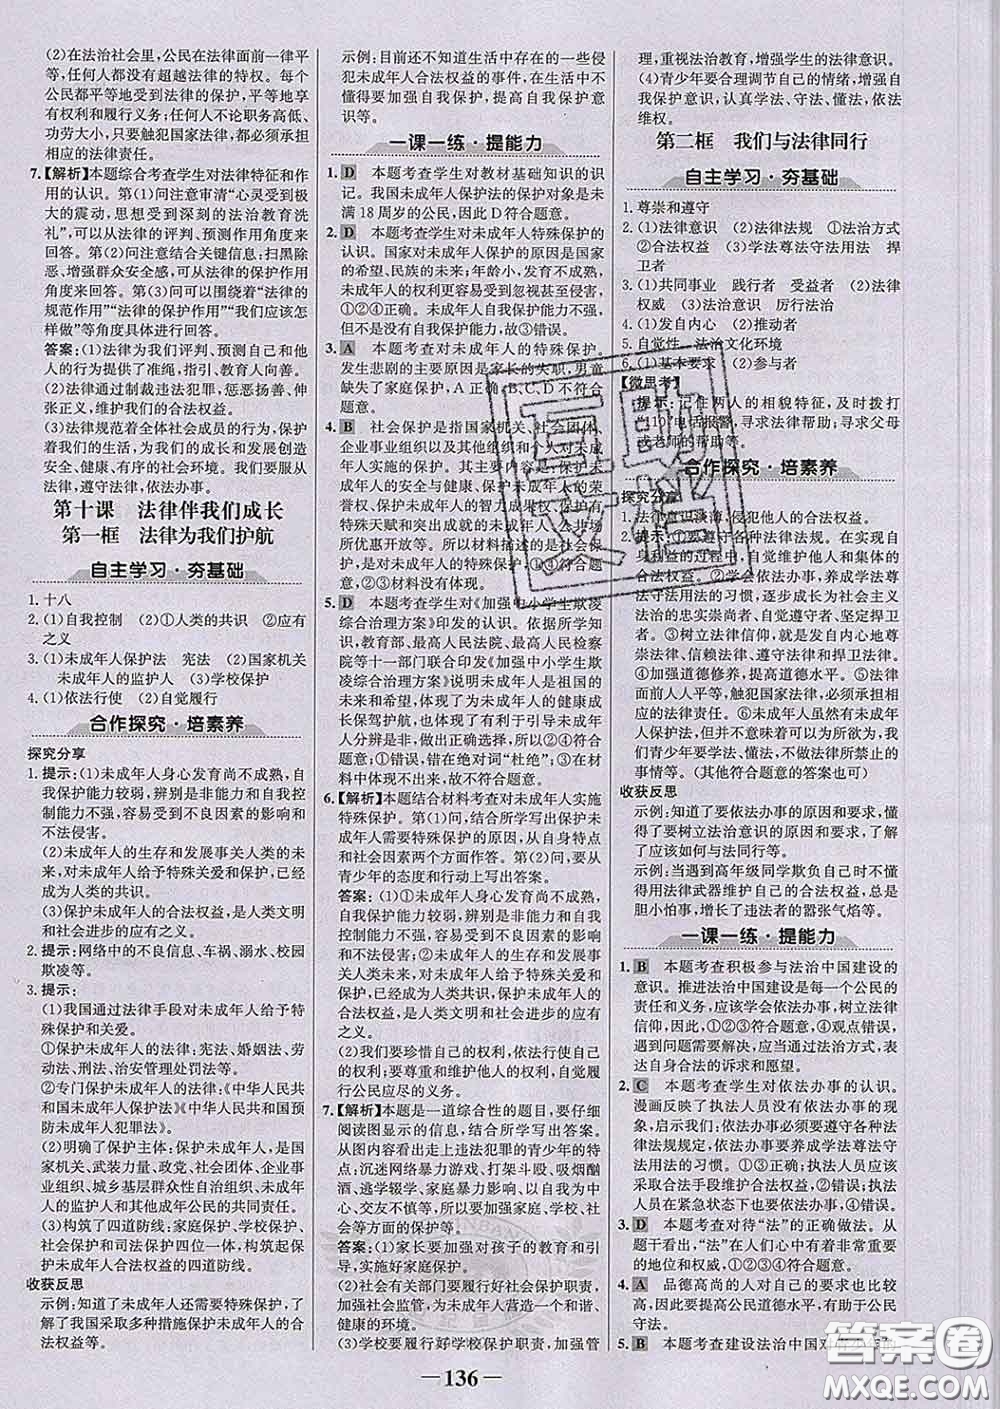 (2)在法治社会里,公民在法律面前一律平
等,任何人都没有超越法律的特权。每个
公民都平等地受到法律的保护,平等地享
有权利和履行义务;任何人不论职务高低、
功劳大小,只要触犯国家法律,都必须承担
相应的法律责任。
7.【解析】本题综合考查学生对法律特征和作
用的认识。第(1)问注意审清“心灵受到极
大的震动,思想受到深刻的法治教育洗
礼”,可以从法律的评判、预测作用角度来
回答。第(2)问注意结合关键信息:扫黑除
恶、增强群众安全感,可从法律的保护作用
角度来回答。第(3)问可以围绕着“法律的
规范作用”“法律的保护作用”“我们应该
怎样做”等角度具体进行回答。
答案:(1)法律为我们评判、预测自己和他
人的行为提供了准绳,指引、教育人向善。
(2)法律通过制裁违法犯罪,惩恶扬善、伸
张正义,维护我们的合法权益。
(3)法律规范着全体社会成员的行为,保护
着我们的生活,为我们的成长和发展创造
安全、健康、有序的社会环境。我们要服从
法律,遵守法律,依法办事。
第十课 法律伴我们成长
第一框 法律为我们护航
自主学习·夯基础
1.十八
2.(1)自我控制 (2)①人类的共识 ②应有
之义
3.(1)未成年人保护法 宪法 (2)国家机关
未成年人的监护人 (3)学校保护
4.(1)依法行使 (2)自觉履行
合作探究·培素养
探究分享
1.提示:(1)未成年人身心发育尚不成熟,自
我保护能力较弱,辨别是非能力和自我控
制能力不强,容易受到不良因素的影响和
不法侵害。
(2)未成年人的生存和发展事关人类的未
来,对未成年人给予特殊关爱和保护,已经
成为人类的共识。
(3)保护未成年人的合法权益,是人类文明
和社会进步的应有之义。
2.提示:网络中的不良信息、车祸、溺水、校园
欺凌等。
3.提示:
(1)我国通过法律手段对未成年人给予特
殊保护和关爱。
①保护未成年人的法律:宪法、婚姻法、劳
动法、刑法、治安管理处罚法等。
②专门保护未成年人的法律:《中华人民共
和国未成年人保护法》《中华人民共和国预
防未成年人犯罪法》。
(2)明确了保护主体:保护未成年人,是国
家机关、武装力量、政党、社会团体、企业事
业组织、城乡基层群众性自治组织、未成年
人的监护人和其他成年公民的共同责任。
(3)构筑了四道防线:家庭保护、学校保护、
社会保护和司法保护四位一体,构筑起保
护未成年人合法权益的四道防线。
收获反思
示例:知道了未成年人还需要特殊保护,了
解了我国采取多种措施保护未成年人的合
法权益等。
示例:目前还不知道生活中存在的一些侵
犯未成年人合法权益的事件,在生活中不
懂得要加强自我保护,提高自我保护意
识等。
一课一练·提能力
1. D 本题考查学生对教材基础知识的识
记。我国未成年人保护法的保护对象是未
满18周岁的公民,因此D符合题意。
2. D 本题考查学生对未成年人特殊保护的
认识。国家对未成年人的保护的原因是国家
的希望、民族的未来;年龄小,发育不成熟,
未成年人的权利更容易受到忽视甚至侵害,
①②④正确。未成年人自我保护能力不强,
但不代表没有自我保护能力,故③错误。
3. A 本题考查对未成年人的特殊保护。
发生悲剧的主要原因是家长的失职,男童
缺失了家庭保护,A正确;B、C、D不符合
题意。
4. B 社会保护是指国家机关、社会团体、
企业事业组织以及其他社会组织和个人对
未成年人实施的保护,保护未成年人的身
体健康、生命安全,保护未成年人的荣誉
权、受教育权等合法权利,保护有
特殊天赋和突出成就的未成年人,公共场
所优惠开放等。材料体现的是社会保
护,是对未成年人的特殊保护,①④符合题
意,故选B;②③材料没有体现。
5. D 本题考查学生对《加强中小学生欺凌
综合治理方案》印发的认识。依据所学知
识,教育部、最高人民法院、最高人民检察
院等十一部门联合印发《加强中小学生欺
凌综合治理方案》说明未成年人是祖国的
未来和民族的希望,为未成年人的健康成
长保驾护航,有利于引导未成年人
分辨是非,预防违法犯罪,所以②④符合
题意;①错误,错在绝对词“杜绝”;③在材
料中没有体现,不符合题意。
6.【解析】本题结合材料考查对未成年人实施
特殊保护。第(1)问,结合所学写出保护未
成年人需要特殊保护的原因,从自身特点
和社会因素两个方面作答。第(2)问,要从
青少年的态度和行动上写出答案。
答案:(1)①未成年人身心发育尚不成熟,
自我保护能力较弱,辨别是非能力和自我
控制能力不强,容易受到不良因素的影响
和不法侵害。②未成年人的生存和发展事
关人类的未来,对未成年人给予特殊关爱
和保护,已经成为人类的共识。③保护未
成年人的合法权益,给予未成年人特殊的
保护,是人类文明和社会进步的应有之
义。
(2)我们要珍惜自己的权利,依法行使自己
的权利,尊重和维护他人的权利,自觉履行
公民应尽的义务。
7.【解析】本题是一道综合性的题目,要仔细
阅读图显示的信息,结合所学写出答案。
从图内容看出违法犯罪的青少年的特
点:沉迷网络暴力游戏、打架斗殴、吸烟酗
酒、逃学辍学、家庭暴力影响、以自我为中
心、交友不慎等,所以要加强家庭、学校、社
会等方面的保护等。
答案:(1)家长要加强对孩子的教育和引
导,实施好家庭保护。
(2)社会有关部门要履行好社会保护职责,
加强社会监管,为未成年人营造一个和谐、
健康的环境。
(3)学校要履行好学校保护职责,加强管
理,重视法治教育,增强学生的法律意识。
(4)青少年要合理调节自己的情绪,增强自
我保护意识,认真学法、守法、懂法,依法
维权。
第二框 我们与法律同行
自主学习·夯基础
1.尊崇和遵守
2.(1)法律意识 (2)法律法规 ①法治方式
②合法权益 (3)学法尊法守法用法 捍
卫者
3.(1)共同事业 践行者 受益者 (2)法律
权威 (3)法治意识 厉行法治
4.(1)发自内心 (2)推动者
5.自觉性 法治文化环境
6.(1)基本要求 (2)参与者
【微思考】
提示:记住两人的相貌特征,及时拨打
110电话报警,寻求法律帮助;寻求父母
或老师的帮助等。
合作探究·培素养
探究分享
1.法律意识淡薄,侵犯他人的合法权益。
2.提示:①遵守各种法律法规。在实现自
身权益的过程中,自觉维护他人和集体的
合法权益。②依法办事,养成学法尊法守
法用法的习惯,逐步成长为社会主义法
治的忠实崇尚者、自觉遵守者、坚定捍卫者。
③树立法律信仰,就是发自内心地尊
崇法律、信赖法律、遵守法律和捍卫法律。
④加强道德修养,提高道德水平。⑤法律
面前人人平等,触犯国家法律都要承担法
律责任。⑥未成年人虽然有未成年人保
护法,但并不意味着可以为所欲为,我
们青少年要学法、懂法,不做法律所禁止的
事情等。(其他符合题意的答案也可)
收获反思
示例:知道了要依法办事的原因和要求,
懂得了要树立法治意识的原因和要求,了解
了应该如何与法同行等。
示例:当遇到高年级同学欺负自己时不懂
得用法律武器维护自己的合法权益,总是
胆小怕事,增大了违法者的嚣张气焰等。
一课一练·提能力
1. B 本题考查积极参与法治中国建设的
意识。推进法治中国建设是每一个公民的
责任和义务,应该学会依法办事,树立法律
信仰,因此,①②③符合题意,④观点错误,
遇到问题需要解决,应通过法治方式,表
达自身合法的诉求和愿望。
2. C 本题考查学生对依法办事的认识。
漫画反映了执法人员没有依法办事的现
象,启示我们,依法办事必须要遵守各种法
律法规规定,依法办事要养成学法尊法守
法用法的习惯。①③正确;执法人员应该
采取合法手段维护合法权益,②错误;执法
人员在紧急状态下也要依法,④错误。
3. D 本题考查对待“法”的正确做法。从
题干看出,“法”在人们心中有着非常重要
的地位和权力,因此D符合题意。
4. A 品德高尚的人对自己的要求也比较
高,因此要提高公民道德水平,有助于公民
守法。
5. B 本题考查建设法治中国对
— 136 —
互助
文档
答案圈
MXQE.COM